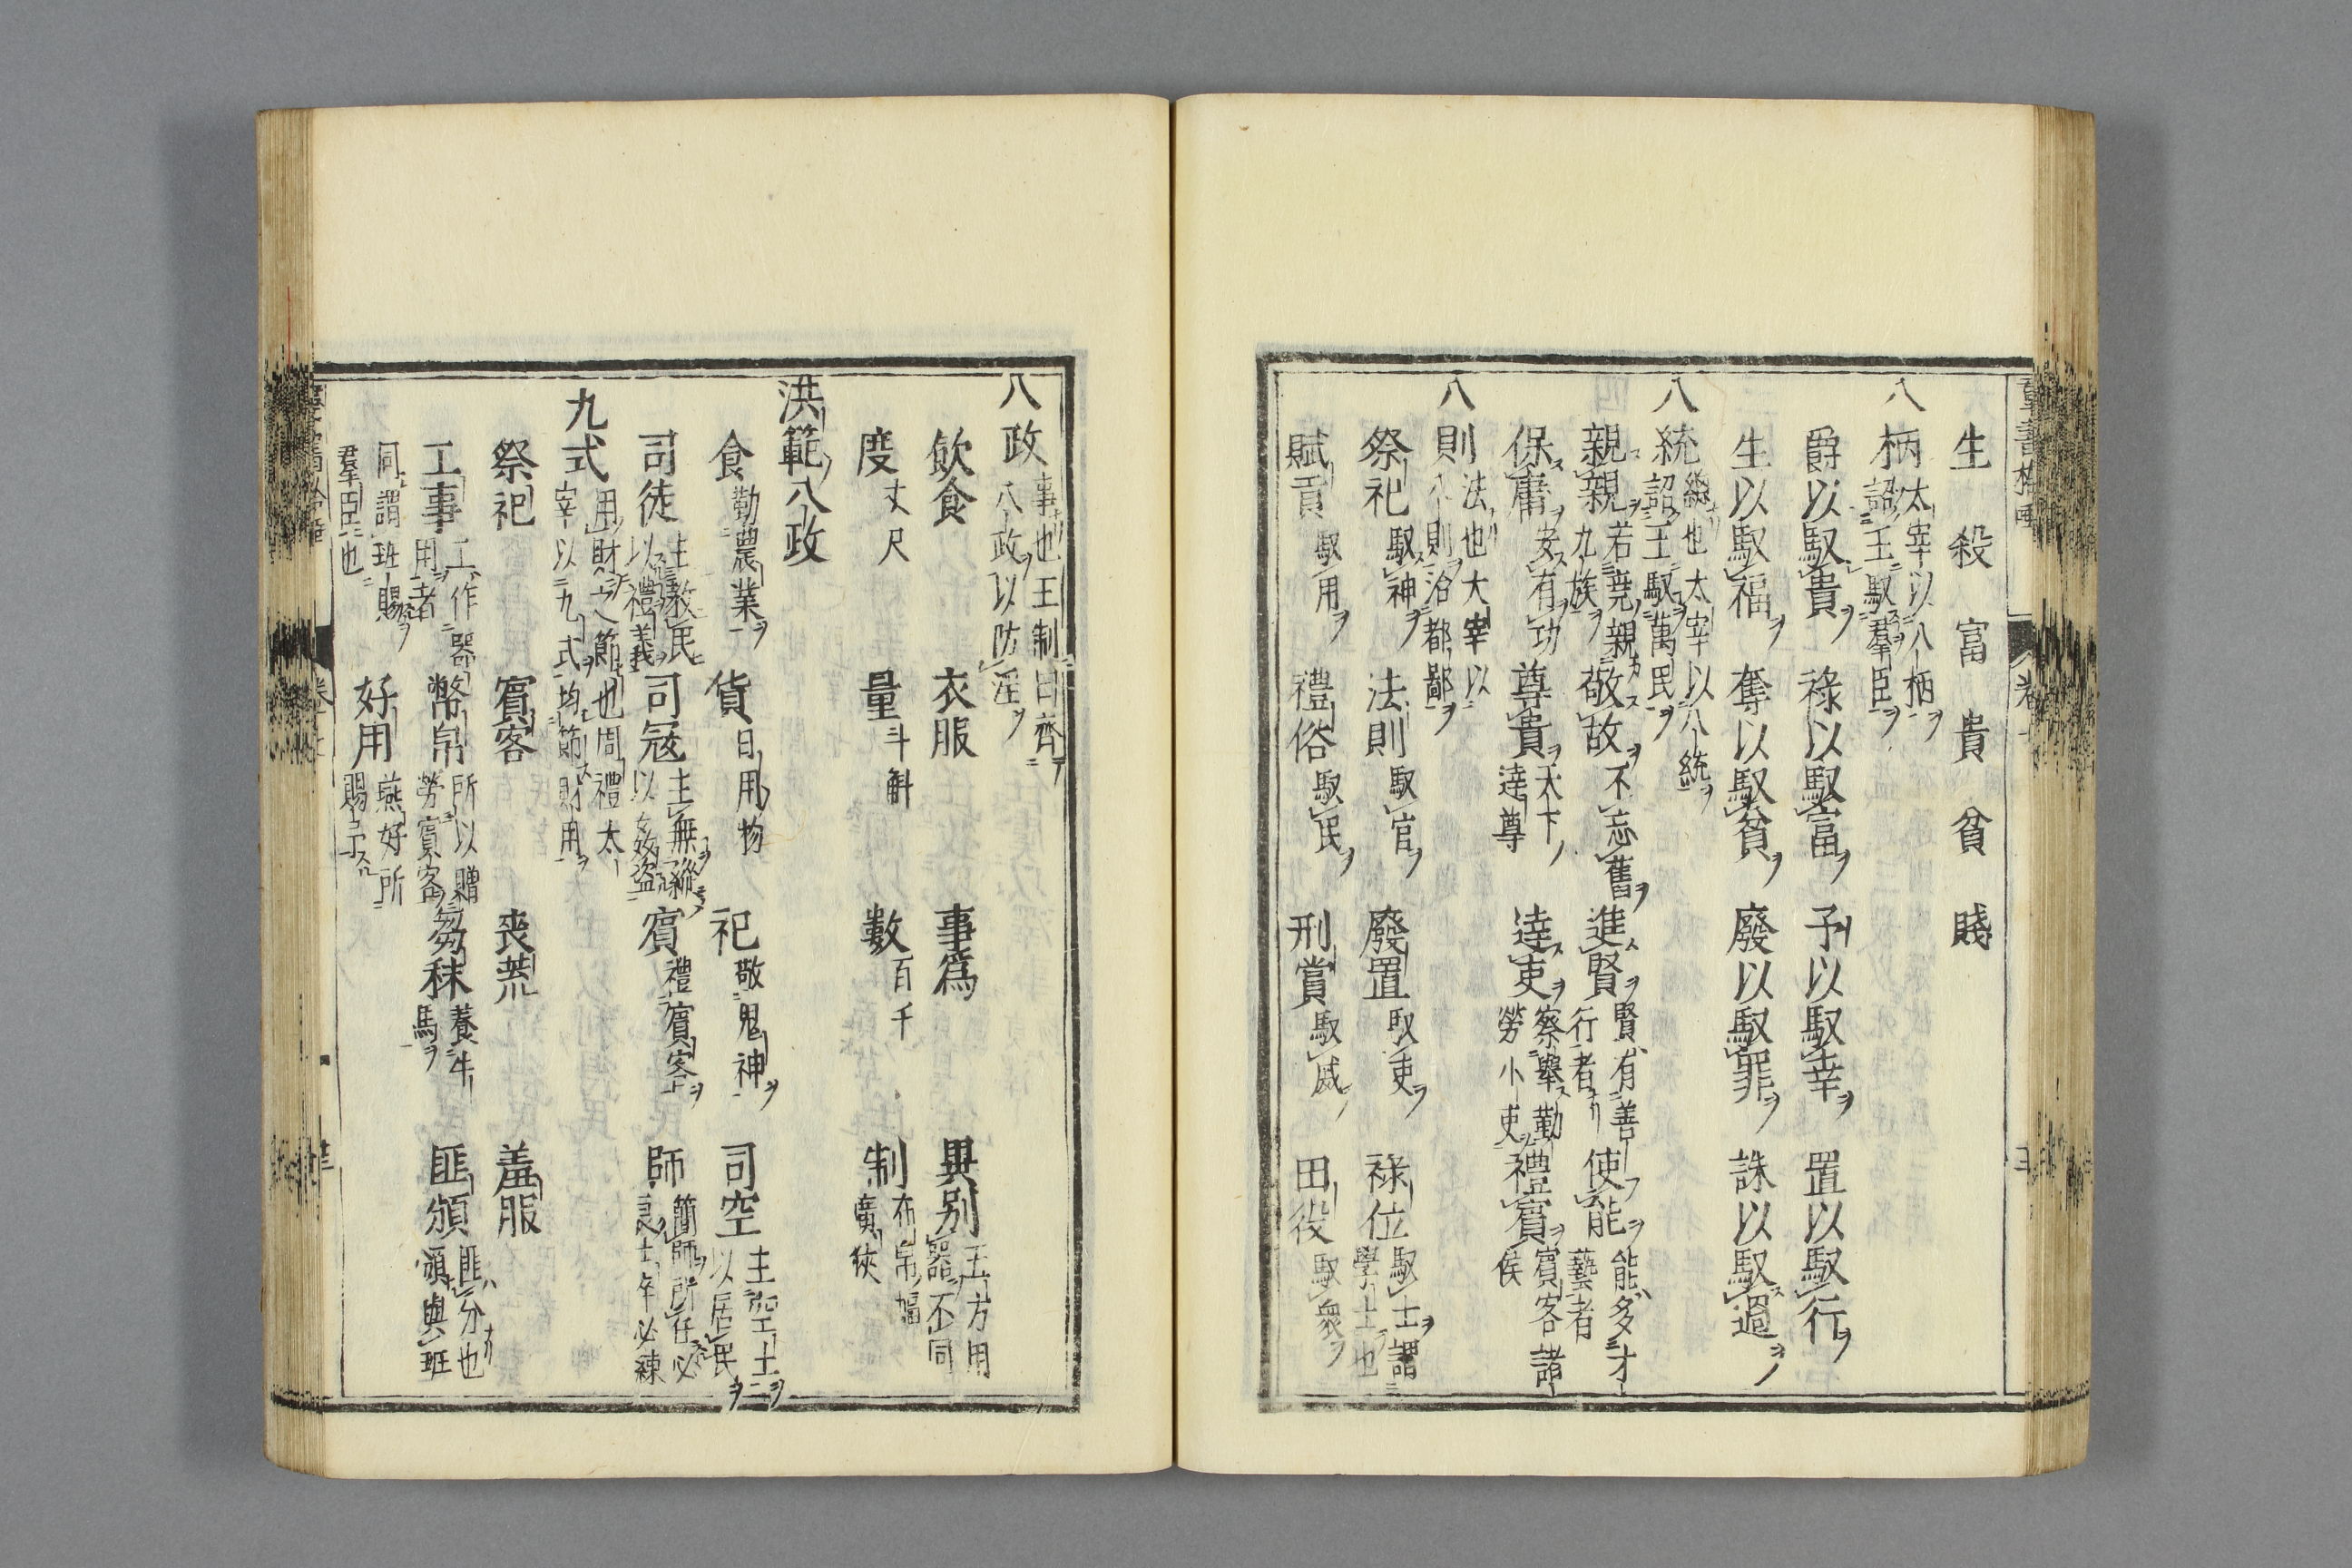 生　殺　富　貴　貧　賤
八柄 太宰以八柄詔王馭羣臣
爵以馭貴　祿以馭富　予以馭幸　置以馭行
生以馭福　奪以馭貧　廢以馭罪　誅以馭過
八統 緫也太宰以八統詔王馭萬民
親親 若堯親九族　敬故 不忘舊　進賢 賢有善行者　使能 能多才藝者
保庸 安有功　尊貴 天下達尊　達吏 察舉勤勞小吏　禮賓 賓客諸侯
八則 法也大宰以八則治都鄙
祭祀 馭神　法則 馭官　廢置 馭吏　祿位 馭士謂學士也
賦貢 馭用　禮俗 馭民　刑賞 馭威　田役 馭衆
八政 事也王制曰齊八政以防淫
飲食　衣服　事爲　異别 五方用器不同
度 丈尺　量 斗斛　數 百千　制 布帛幅廣狹
洪範八政
食 勤農業　貨 日用物　祀 敬鬼神　司空 主空土以居民
司徒 主敎民以禮義　司冦 主無縱以姦盜　賓 禮賓客　師 簡師所任必良士卒必練
九式 用財之節也周禮太宰以九式均節財用
祭祀　賓客　喪荒　羞服
工事 工作器用者　幣帛 所以贈勞賓客　芻秣 養牛馬　匪頒 匪分也頒與班
同謂班賜羣臣也　好用 燕好所賜予